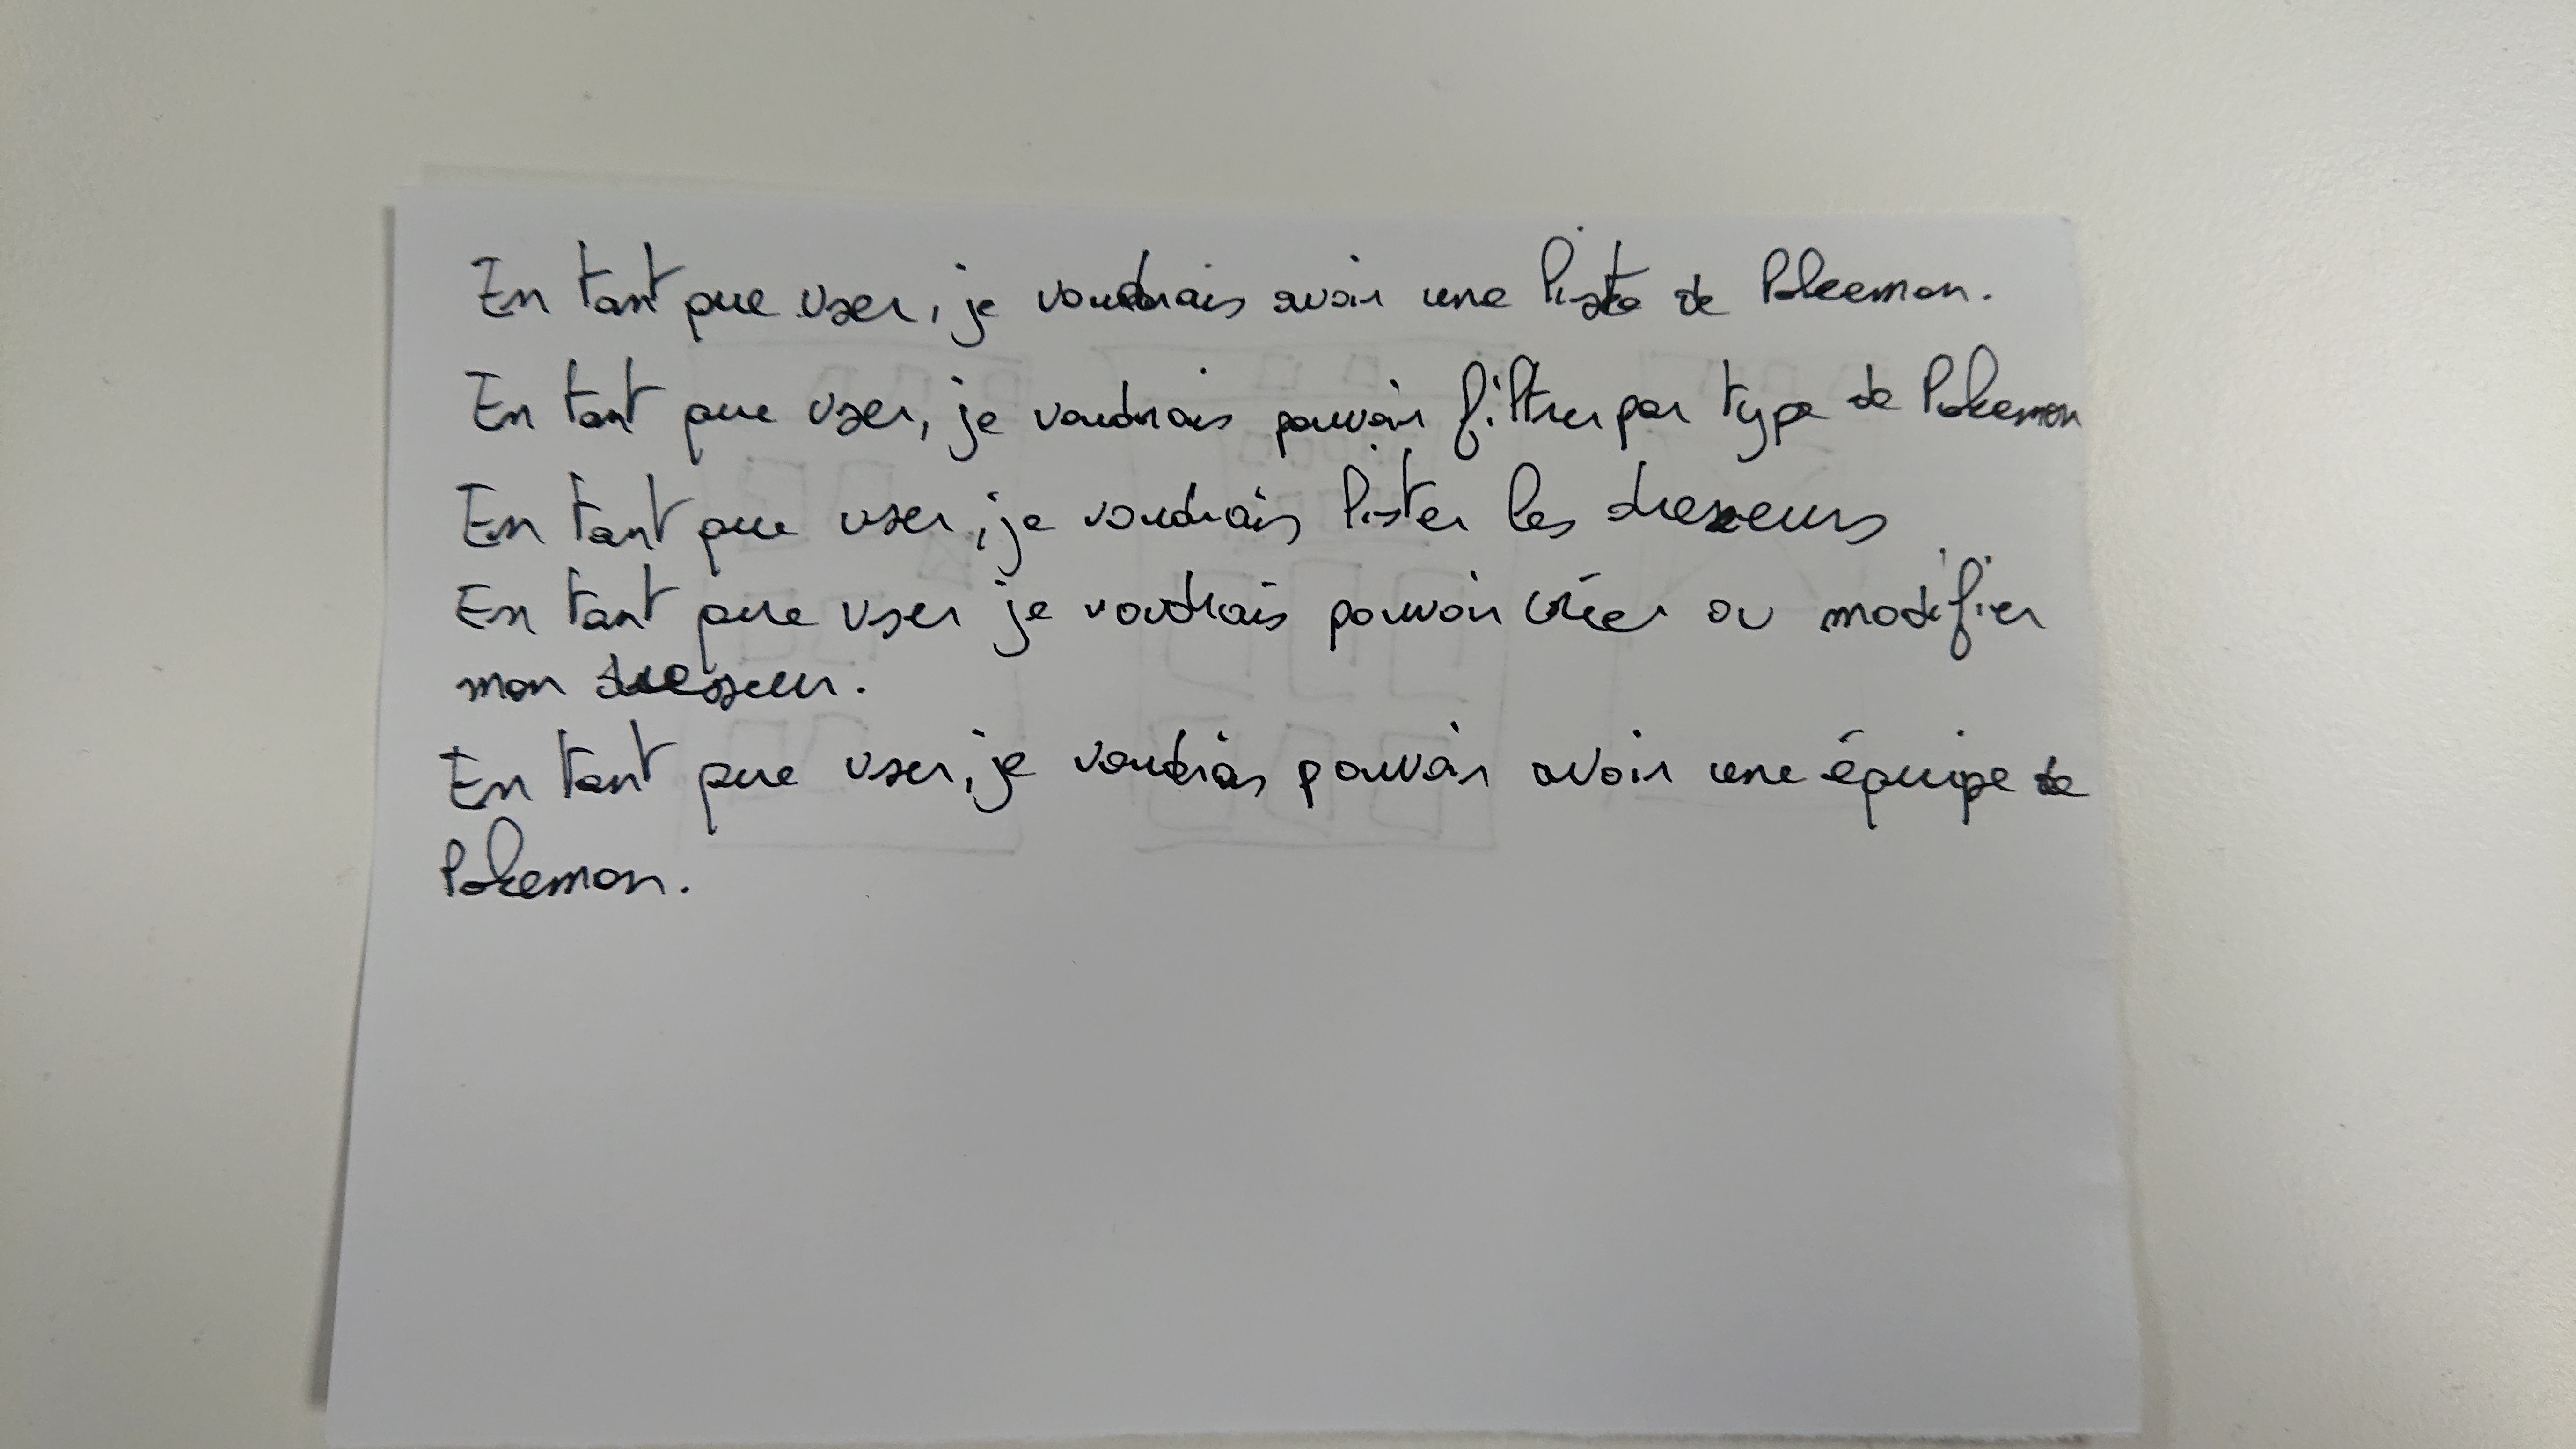 En tant que user, je voudrais avoir une liste de Pokemon.
En tant que user, je voudrais pouvoir filtrer par type de Pokemon
En tant que user, je voudrais lister les dresseurs
En tant que user je voudrais pouvoir créer ou modifier
mon dresseur.
En tant que user, je voudrais pouvoir avoir une équipe de
Pokemon.